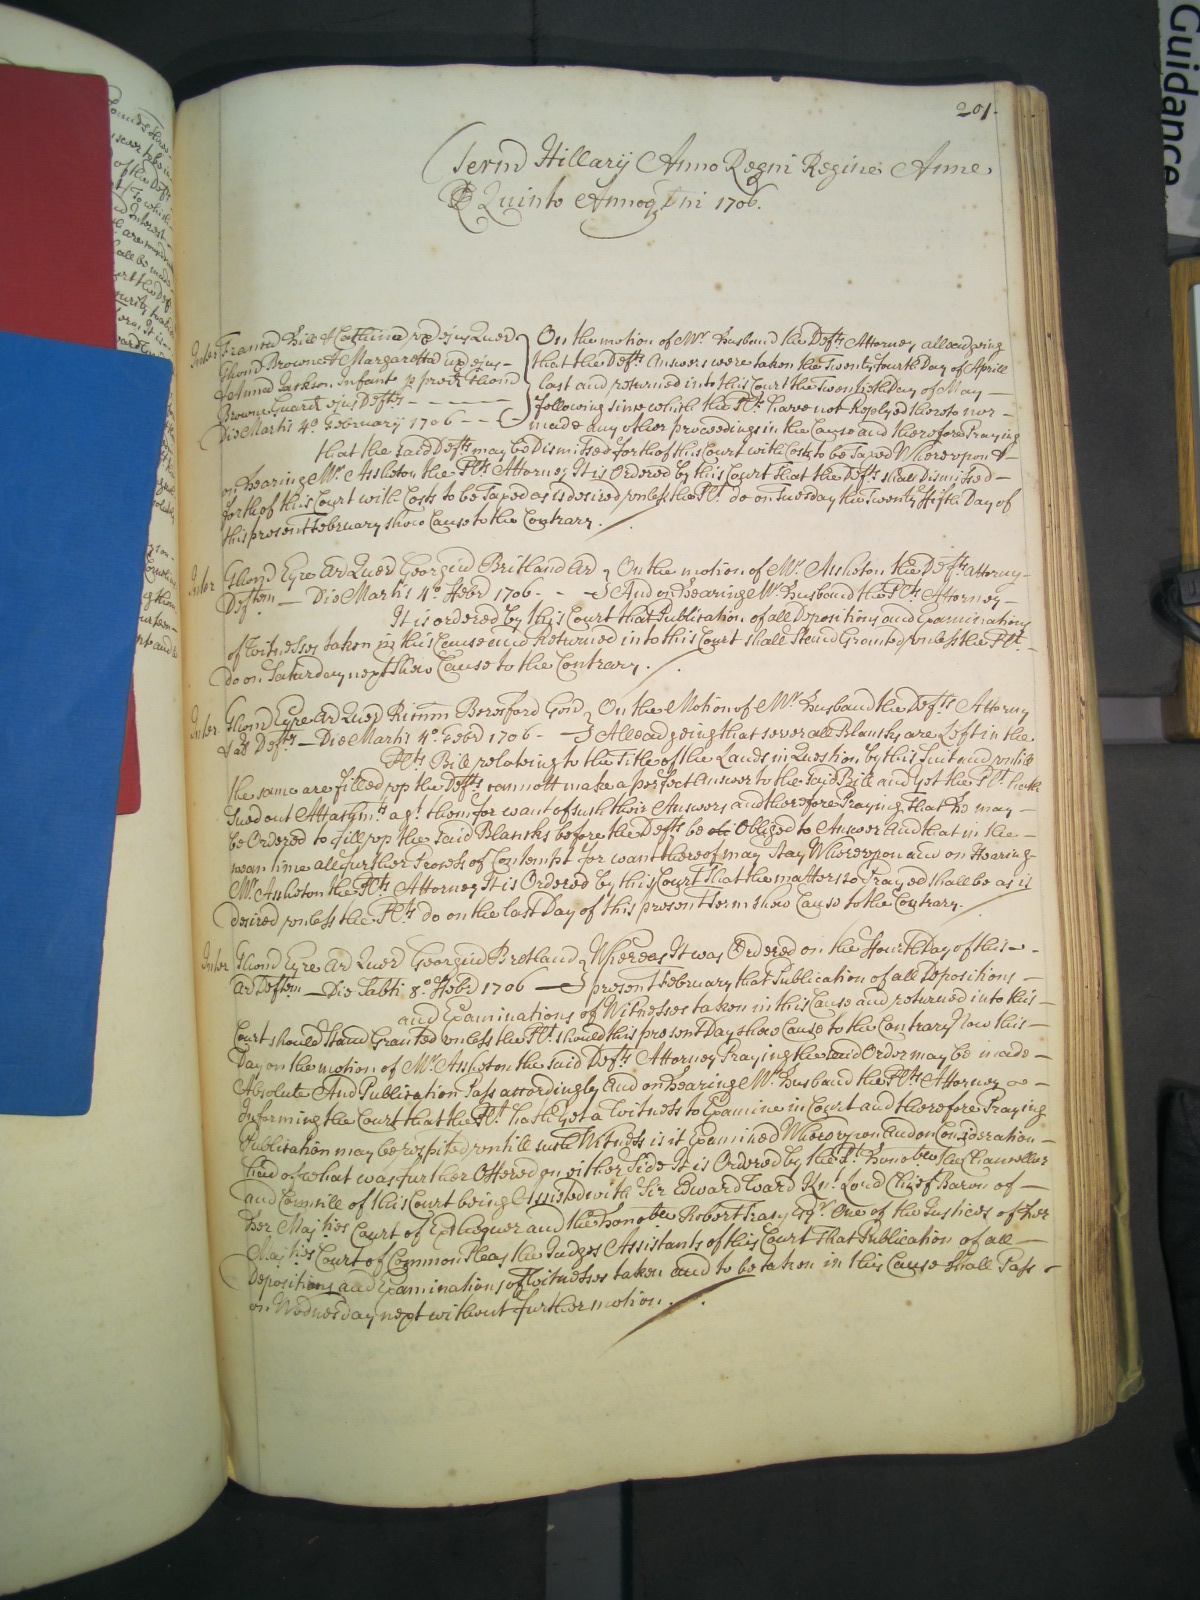 Guidance
201.
Termino Hillarij Anno Regni Reginæ Anne
Quinto Annoq Dni 1706.
Inter Franc Hill & Catherina ux ejus Quer
Thom Browne & Margaretta ux ejus
& Anna Jackson Infante p Thom
Browne Guard ejus Defts
Die Martis 4o February 1706
On the motion of Mr. Husband the Defts Attorney alleadgeing
that the Defts Answers were taken the Twenty fourth Day of Aprill
last and returned into this Court the Twentieth Day of May
following since which the Plts have not Replyed thereto nor
made any other proceedings in the Cause and therefore Praying
that the said Defts may be Dismissed forth of this Court with Costs to be Taxed Whereupon &
on hearing Mr. Assheton the Plts Attorney It is Ordered by this Court That the Defts shall Dismissed
forth of this Court with Costs to be Taxed as is desired unless the Plt. do on Tuesday the Twenty ffifth Day of
this present February show Cause to the Contrary.
Inter Thom Eyre Ar Quer Georgiu Bretland Ar
Deftem Die Martis 4o. Febr 1706
On the motion of Mr. Assheton the Defts Attorny
And on hearing Mr. Husband the Plts Attorney
It is ordered by this Court that Publication of all Depositions and Examinations
of Witnesses taken in this Cause and Returned into this Court shall Stand Granted unless the Plt.
do on Saturday next Shew Cause to the Contrary.
Inter Thom Eyre Ar Quer Ricum Beresford Gen
& al Defts Die Martis 4o. Febr 1706
On the Motion of Mr Husband the Defts Attorny
Alleadgeing that severall Blanks are Left in the
Plts Bill relating to the Title of the Lands in Question by this Suit and untill
the same are filled up the Defts cannott make a perfect Answer to the said Bill and yet the Plt. hath
sued out Attachmts agt. them for want of such their Answers and therefore Praying that he may
be Ordered to fill up the said Blanks before the Defts be Obliged to Answer And that in the
mean time all further Process of Contempt for want thereof may Stay Whereupon and on Hearing
Mr. Assheton the Plts Attorney It is Ordered by this Court That the matters so Prayed shall be as is
desired unless the Plts do on the last Day of this present Term shew Cause to the Contrary.
Inter Thom Eyre Ar Quer Georgiu Bretland
Ar Deftem Die Sabti 8o. Febr 1706
Whereas It was Ordered on the Fourth Day of this
present February that Publication of all Depositions
and Examinations of Witnesses taken in this Cause and returned into this
Court should Stand Granted unless the Plt should this present Day show Cause to the Contrary Now this
Day on the motion of Mr. Assheton the said Defts Attorney Praying the said Order may be made
Absolute And Publication Pass accordingly And on hearing Mr. Husband the Plts Attorney
Informing the Court that the Plt. hath yet a Witness to Examine in Court and therefore Praying
Publication may be respited untill such Witness is Examined Whereupon and on Consideration
had of what was further Offered on either Side It is Ordered by the Rt. Honoble the Chancellor
and Councill of this Court being Assisted with Sir Edward Ward Knt. Lord Chief Baron of
her Majties Court of Exchequer and the Honoble Robert Tracy Esqr. One of the Justices of her
Majties Court of Common Pleas the Judges Assistants of this Court That Publication of all
Depositions and Examinations of Witnesses taken and to be taken in this Cause Shall Pass
on Wednesday next without further motion.